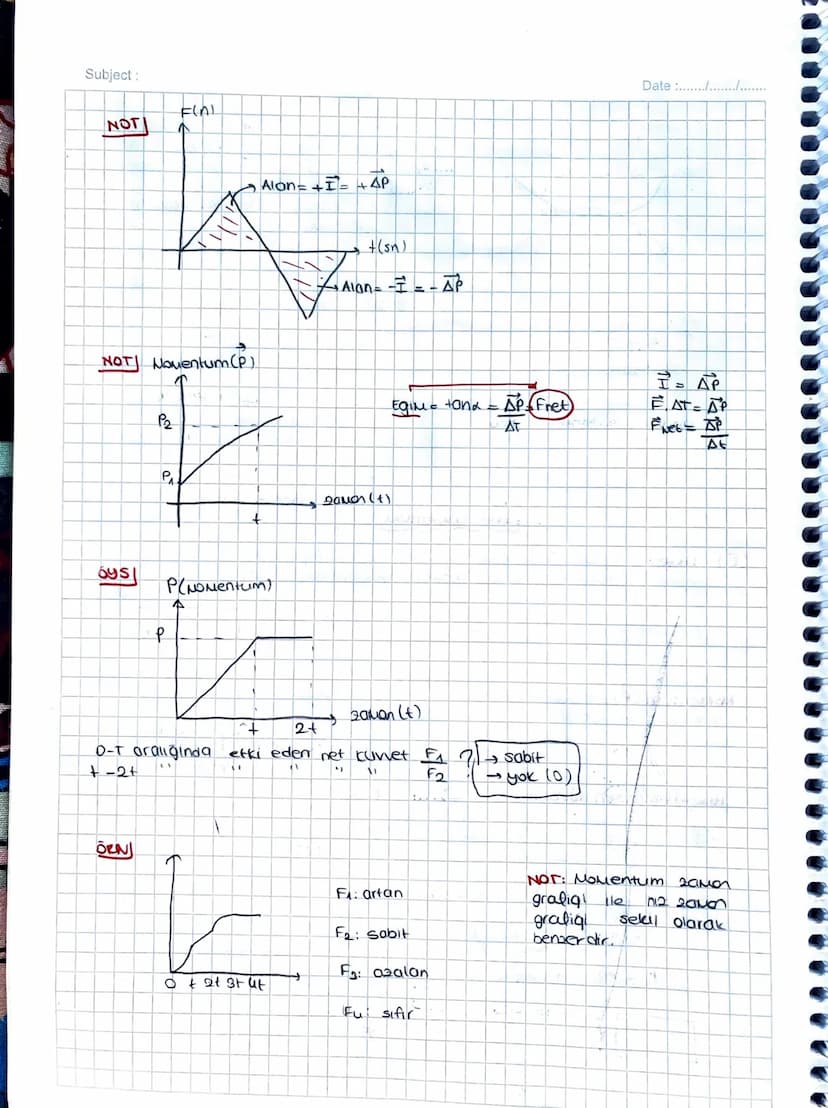 Subject :
Date :......./......./.......
NOT
F(n)
Alan = +I = +ΔP
t(sn)
Alan = -I = -ΔP
NOT Momentum (P)
P2
P1
t
zaman (t)
Eğim = tanα = ΔP = Fnet
ΔT
I = ΔP
F.ΔT = ΔP
FNet = ΔP
Δt
ÖYS
P(MOMentum)
P
t 2t
zaman (t)
0-T aralığında etki eden net kuvvet F1 ? → sabit
t-2t " " " " " F2 → yok (0)
ÖRN
0 t 2t 3t 4t
F1: artan
F2: sabit
F3: azalan
F4: sıfır
NOT: Momentum zaman
grafiği ile hız zaman
grafiği şekil olarak
benzerdir.